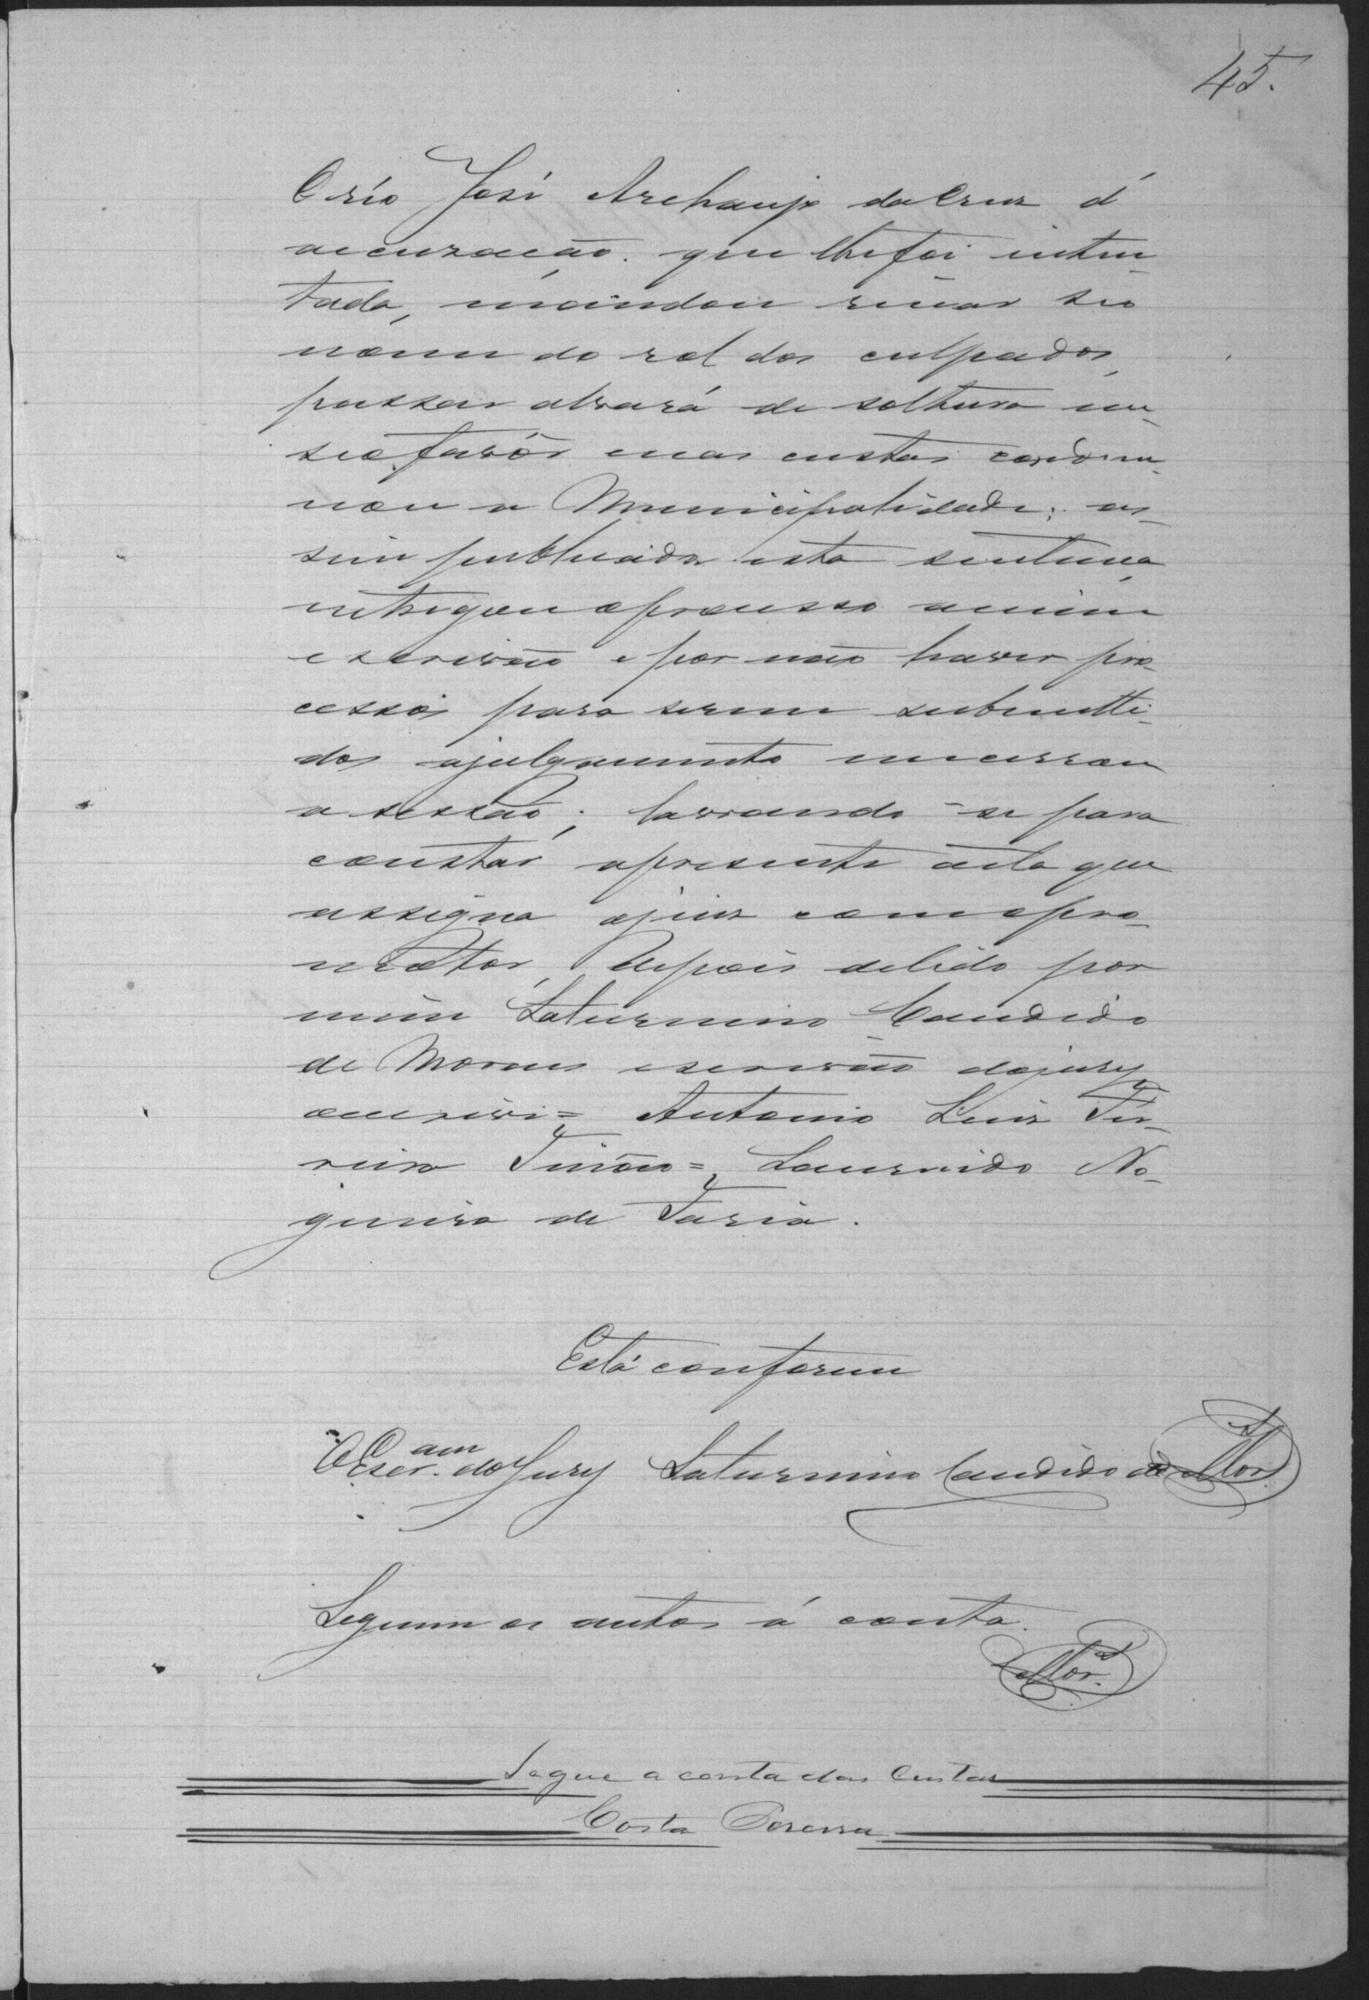 45.
O réo José Archanjo da Cruz d'
accuzacão. que lhe foi inten-
tada, mandou riscar seu
nome do rol dos culpados,
passar alvará de soltura em
seo favôr e nas custas condem-
nou a Municipalidade; as-
sim publicada esta sentença
entregou o processo a mim
escrivão e por não haver pro-
cessos para serem submetti-
dos a julgamento encerrou
a sessão; lavrando-se para
constar a presente acta que
assigna o juiz com o pro-
motor, depois de lido por
mim Saturnino Candido
de Moraes escrivão do jury
o escrivi = Antonio Luiz Fer-
reira Tinôco =, Lauranido No-
gueira de Faria.
Está conforme
O Escr.am do Jury Saturnino Candido de Mor.s
Seguem os autos á conta.
Mor.s
Segue a conta das Custas
Costa Pereira